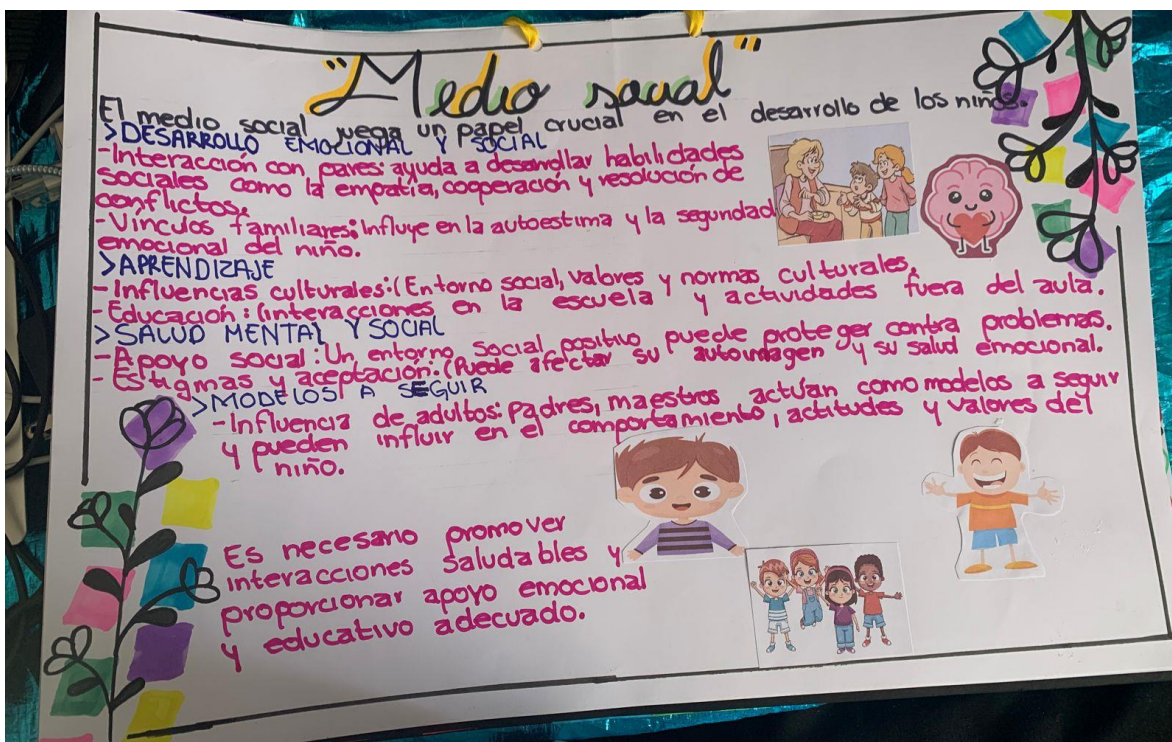 "Medio social"
El medio social juega un papel crucial en el desarrollo de los niños.
>DESARROLLO EMOCIONAL Y SOCIAL
-Interacción con pares: ayuda a desarrollar habilidades
sociales como la empatía, cooperación y resolución de
conflictos.
-Vínculos familiares: Influye en la autoestima y la seguridad
emocional del niño.
>APRENDIZAJE
-Influencias culturales: (Entorno social, valores y normas culturales.
-Educación: (interacciones en la escuela y actividades fuera del aula.
>SALUD MENTAL Y SOCIAL
-Apoyo social: Un entorno social positivo puede proteger contra problemas.
-Estigmas y aceptación: (Puede afectar su autoimagen y su salud emocional.
>MODELOS A SEGUIR
-Influencia de adultos: Padres, maestros actúan como modelos a seguir
y pueden influir en el comportamiento, actitudes y valores del
niño.
Es necesario promover
interacciones saludables y
proporcionar apoyo emocional
y educativo adecuado.